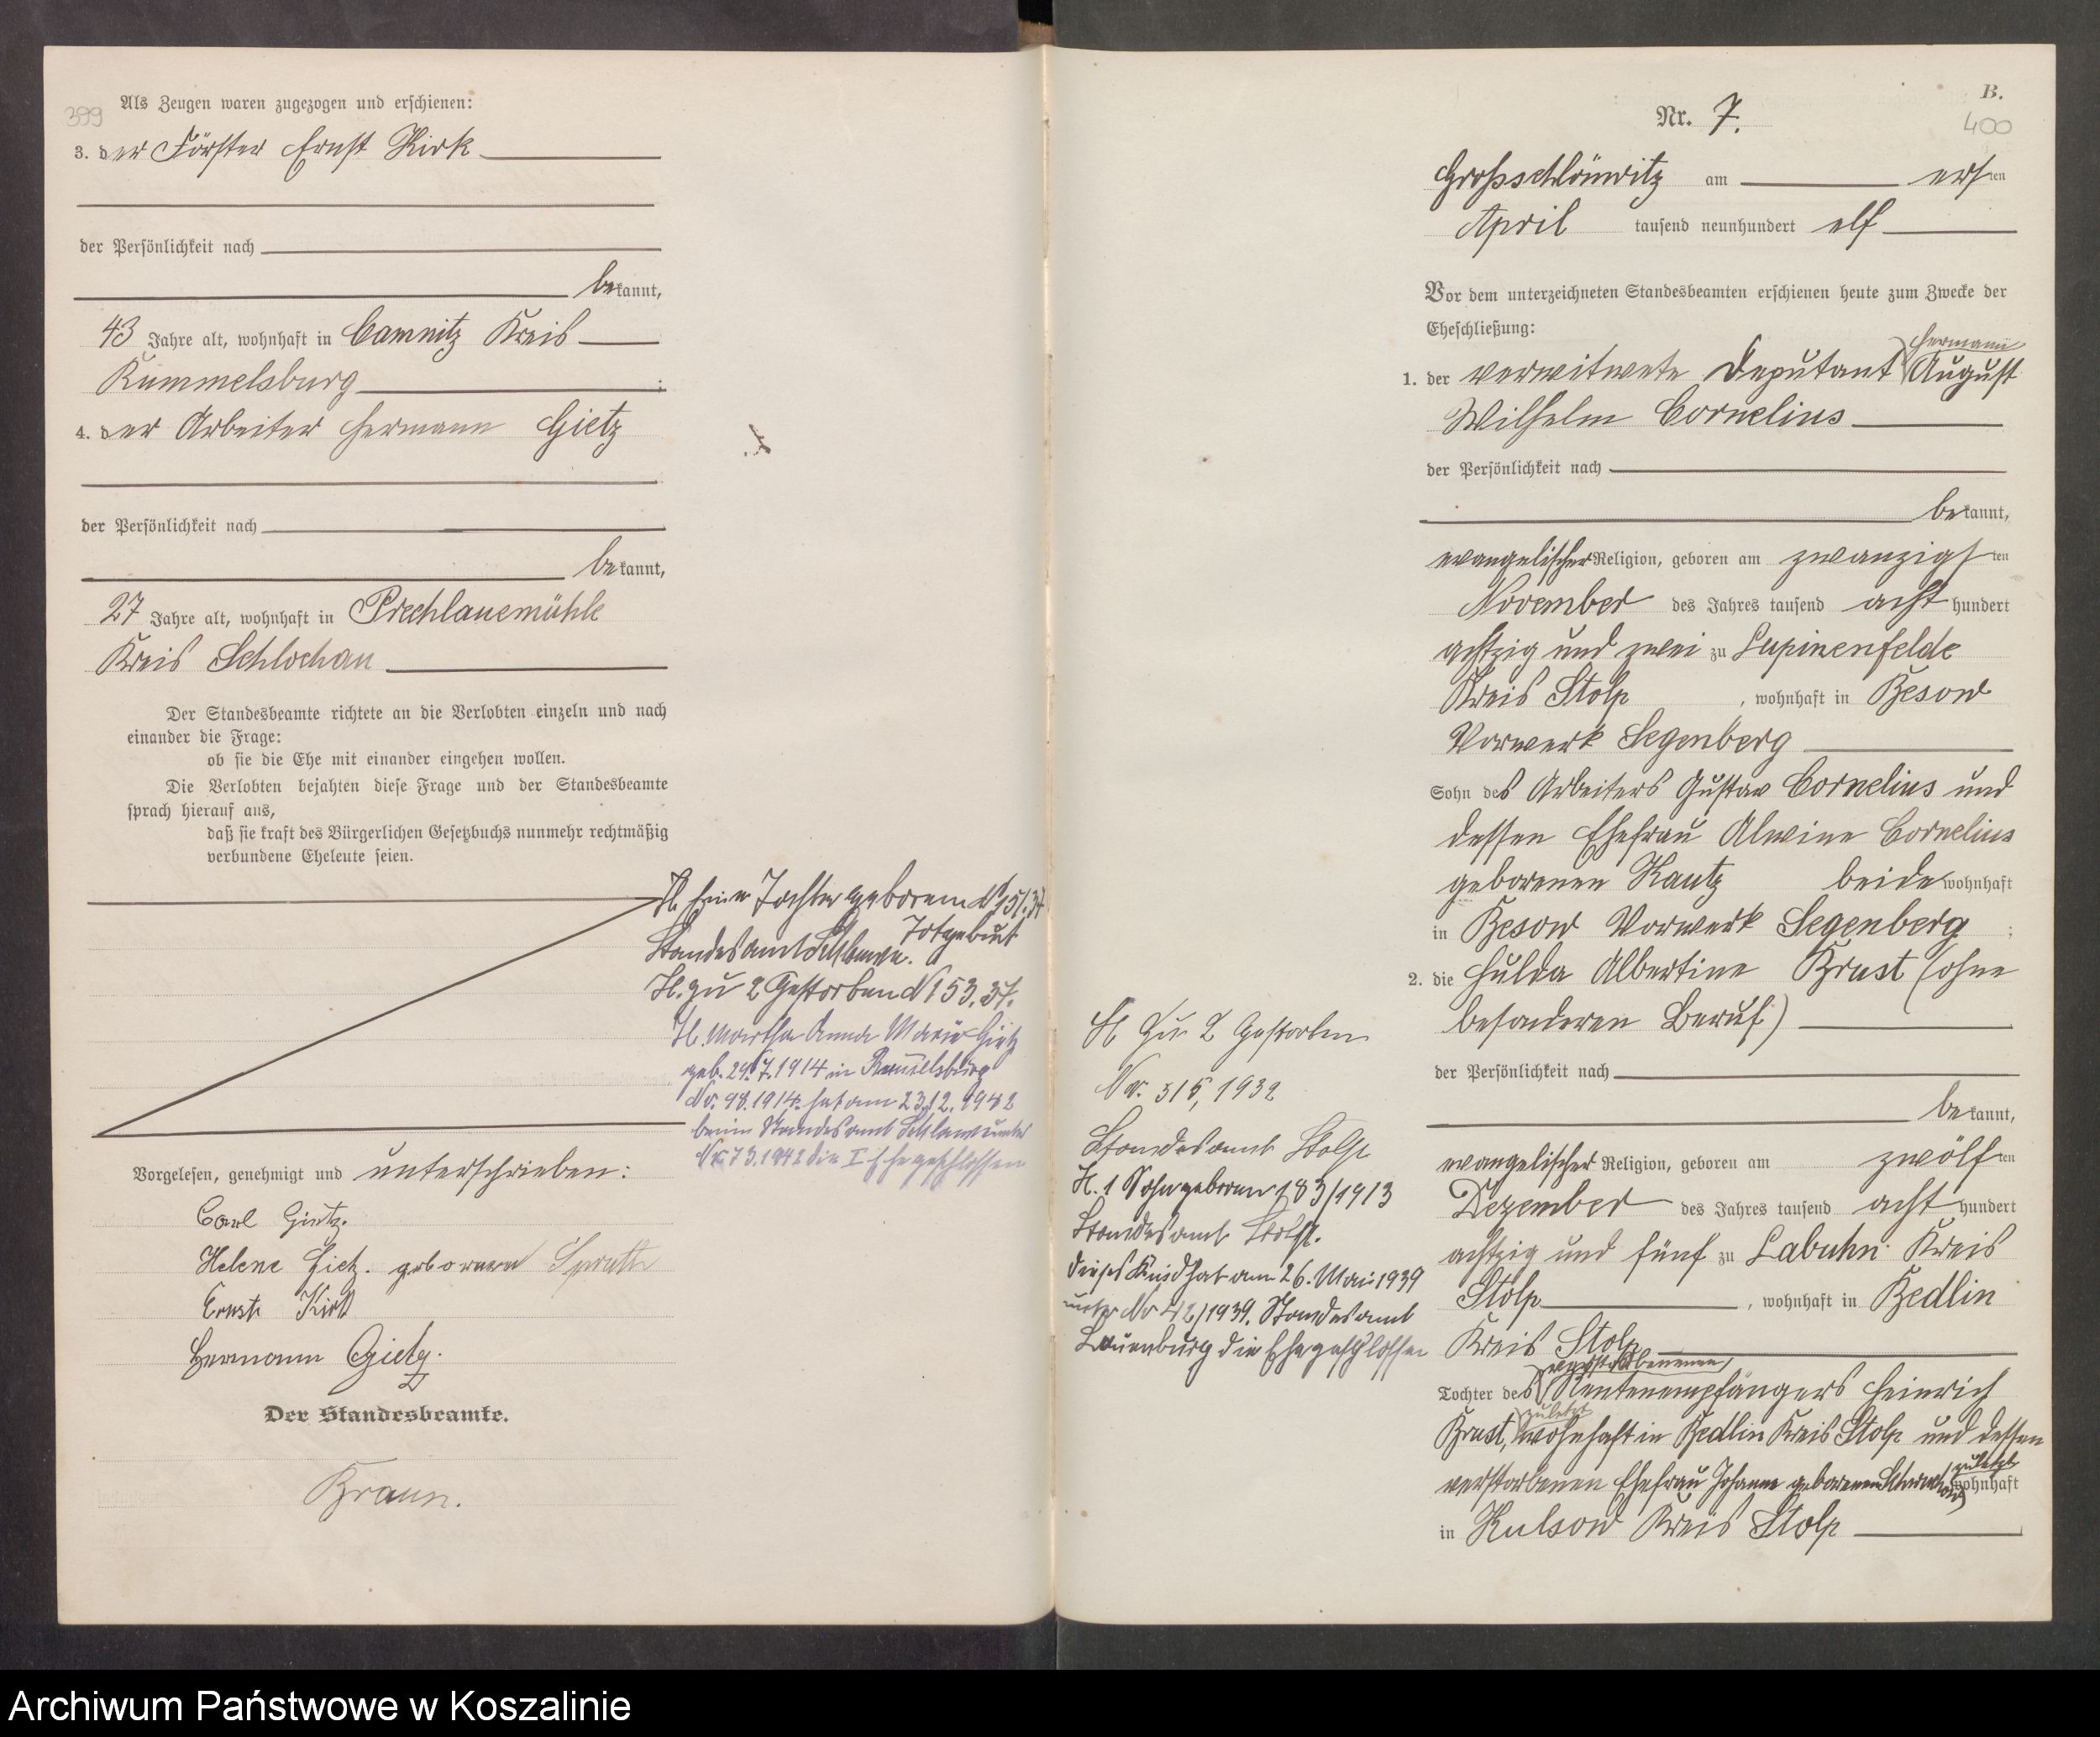 399
Als Zeugen waren zugezogen und erschienen:
3. der Förster Ernst Kirk
der Persönlichkeit nach
bekannt,
43 Jahre alt, wohnhaft in Camnitz Kreis
Rummelsburg ;
4. der Arbeiter Hermann Gietz
der Persönlichkeit nach
bekannt,
27 Jahre alt, wohnhaft in Prechlauemühle
Kreis Schlochau
Der Standesbeamte richtete an die Verlobten einzeln und nach
einander die Frage:
ob sie die Ehe mit einander eingehen wollen.
Die Verlobten bejahten diese Frage und der Standesbeamte
sprach hierauf aus,
daß sie kraft des Bürgerlichen Gesetzbuchs nunmehr rechtmäßig
verbundene Eheleute seien.
H. Eine Tochter geboren N 151.37
Totgeburt
Standesamt Schlawe.
H. zu 2 Gestorben N 153.37.
H. Martha Anna Marie Gietz
geb. 29.7.1914 in Rummelsburg
No. 98.1914. hat am 23.12.1942
beim Standesamt Schlawe unter
Nr. 73.1942 die I Ehe geschlossen
Vorgelesen, genehmigt und unterschrieben:
Carl Gietz.
Helene Gietz. geborene
Ernst Kirk
Hermann Gietz.
Der Standesbeamte.
Braun.
B.
400
Nr. 7.
Grossschlönwitz am ersten
April tausend neunhundert elf
Vor dem unterzeichneten Standesbeamten erschienen heute zum Zwecke der
Eheschließung:
Hermann
1. der verwitwete Deputant August
Wilhelm Cornelius
der Persönlichkeit nach
bekannt,
evangelischer Religion, geboren am zwanzigsten
November des Jahres tausend acht hundert
achtzig und zwei zu Lupinenfelde
Kreis Stolp, wohnhaft in Besow
Vorwerk Segenberg
Sohn des Arbeiters Gustav Cornelius und
dessen Ehefrau Alwine Cornelius
geborenen Kautz beide wohnhaft
in Besow Vorwerk Segenberg ;
2. die Hulda Albertine Brust (ohne
besonderen Beruf)
der Persönlichkeit nach
bekannt,
evangelischer Religion, geboren am zwölften
Dezember des Jahres tausend acht hundert
achtzig und fünf zu Labuhn Kreis
Stolp, wohnhaft in Bedlin
Kreis Stolp
verstorbenen
Tochter des Rentenempfängers Heinrich
zuletzt
Brust, wohnhaft in Bedlin Kreis Stolp und dessen
zuletzt
verstorbenen Ehefrau Johanne geborenen wohnhaft
in Kulsow Kreis Stolp
H zu 2 Gestorben
Nr. 315, 1932
Standesamt Stolp
H. 1 Sohn geboren 183/1913
Standesamt Stolp.
dieses Kind hat am 26. Mai 1939
unter No 42/1939. Standesamt
Lauenburg die Ehe geschlossen
Archiwum Państwowe w Koszalinie